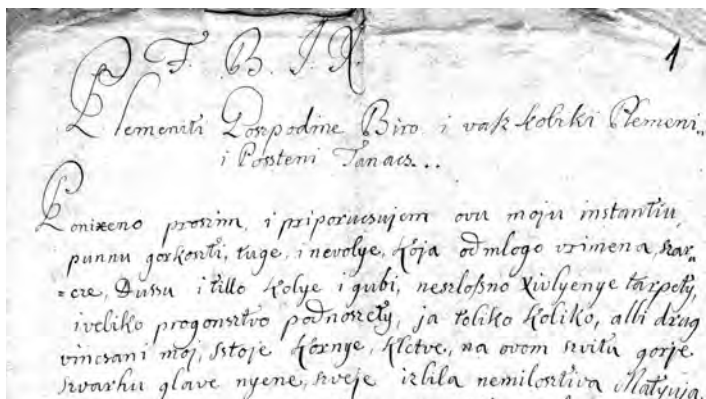 F. B. I. X.
1
Plemeniti Goszpodine Biro i vas koliki Plemeni-
i Possteni Tanacs...
Ponixeno proszim, i priporucsujem ovu moju instantiu,
punnu gorkoszti, tuge, i nevolye, koja od mlogo vrimena, szar-
cze, Dussu i tillo kolye i gubi, neszloxno xivlyenye tarpety,
i veliko progonsztvo podnoszety, ja toliko koliko, alli drug
vincsani moj, sstoje kornye, kletve, na ovom szvitu gorje
szvarhu glave nyene, szveje izlila nemilosztiva Matyuja